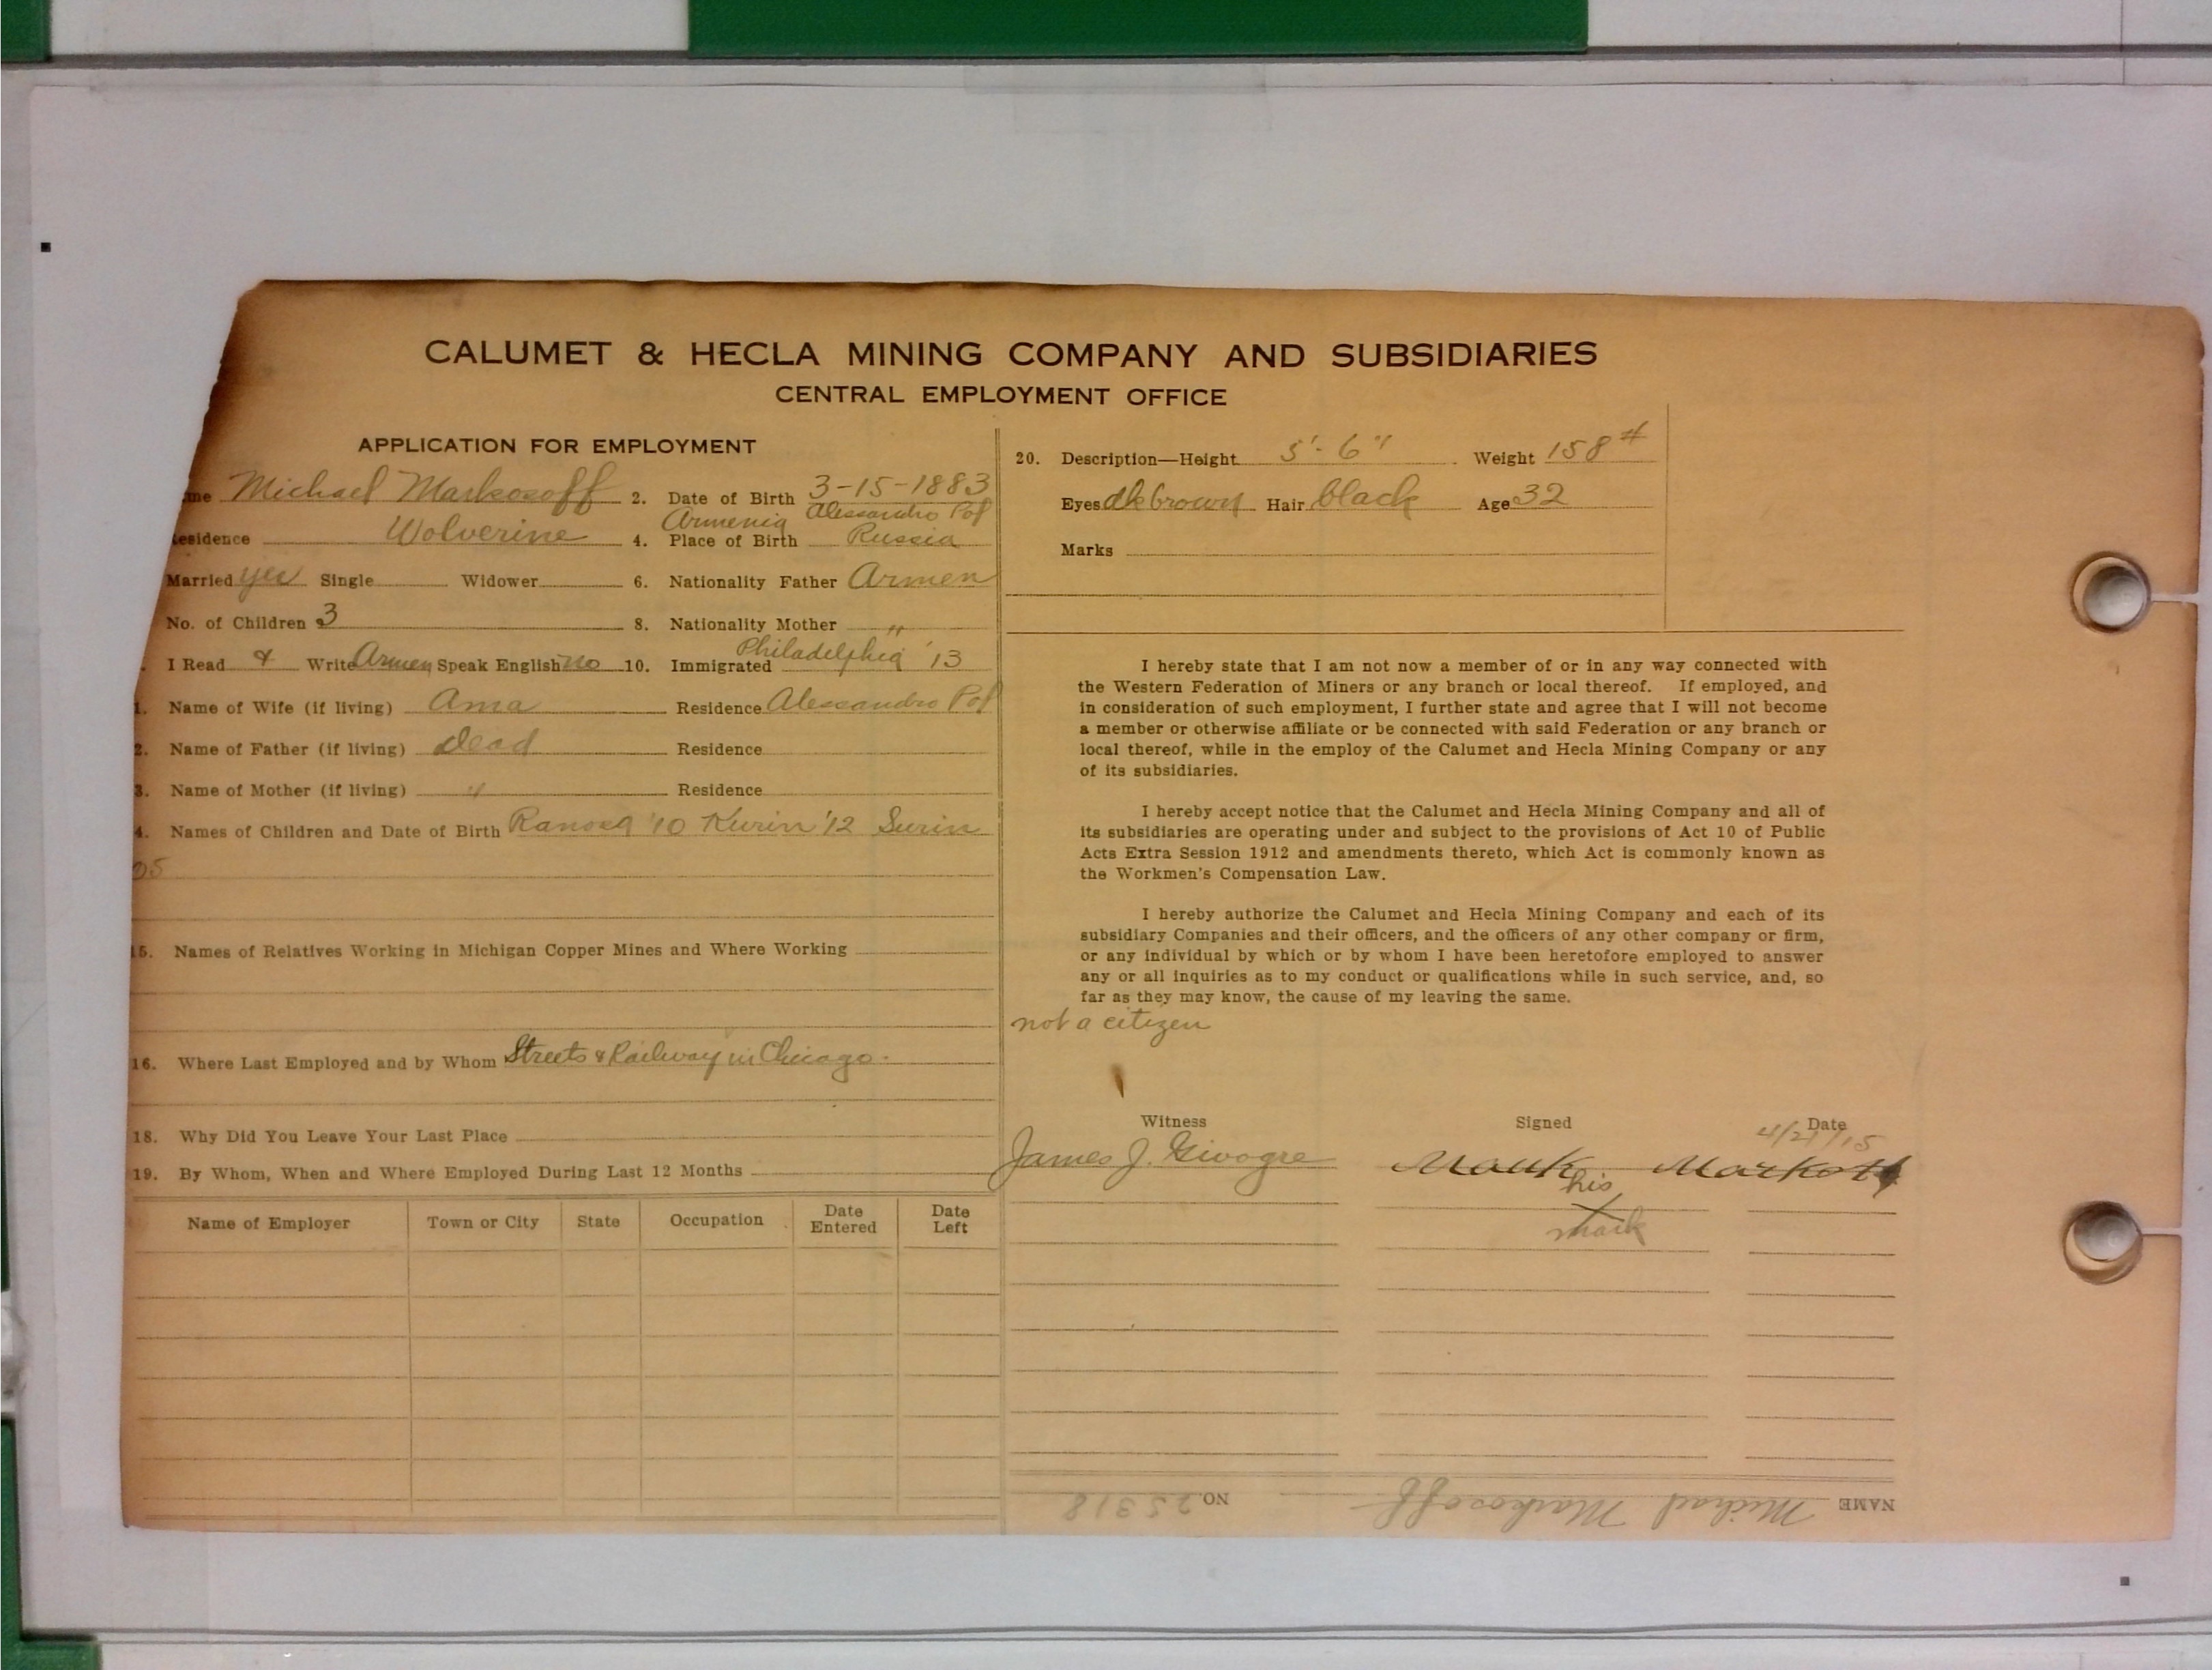 CALUMET & HECLA MINING COMPANY AND SUBSIDIARIES
CENTRAL EMPLOYMENT OFFICE
APPLICATION FOR EMPLOYMENT
me Michael Markosoff 2. Date of Birth 3-15-1883
Residence Wolverine 4. Place of Birth Armenia Alessandro Pol Russia
Married yes Single Widower 6. Nationality Father Armen
No. of Children 3 8. Nationality Mother "
I Read & Write Armen Speak English no 10. Immigrated Philadelphia '13
1. Name of Wife (if living) Ama Residence Alessandro Pol
2. Name of Father (if living) Dead Residence
3. Name of Mother (if living) " Residence
4. Names of Children and Date of Birth '10 Kurin '12 Surin
05
15. Names of Relatives Working in Michigan Copper Mines and Where Working
16. Where Last Employed and by Whom Streets & Railway in Chicago.
18. Why Did You Leave Your Last Place
19. By Whom, When and Where Employed During Last 12 Months
Name of Employer Town or City State Occupation Date Entered Date Left
20. Description—Height 5'-6" Weight 158#
Eyes dk brown Hair black Age 32
Marks
I hereby state that I am not now a member of or in any way connected with
the Western Federation of Miners or any branch or local thereof. If employed, and
in consideration of such employment, I further state and agree that I will not become
a member or otherwise affiliate or be connected with said Federation or any branch or
local thereof, while in the employ of the Calumet and Hecla Mining Company or any
of its subsidiaries.
I hereby accept notice that the Calumet and Hecla Mining Company and all of
its subsidiaries are operating under and subject to the provisions of Act 10 of Public
Acts Extra Session 1912 and amendments thereto, which Act is commonly known as
the Workmen's Compensation Law.
I hereby authorize the Calumet and Hecla Mining Company and each of its
subsidiary Companies and their officers, and the officers of any other company or firm,
or any individual by which or by whom I have been heretofore employed to answer
any or all inquiries as to my conduct or qualifications while in such service, and, so
far as they may know, the cause of my leaving the same.
not a citizen
Witness Signed Date
4/21/15
James J.
his
X
mark
NAME Michael Markosoff NO. 25318